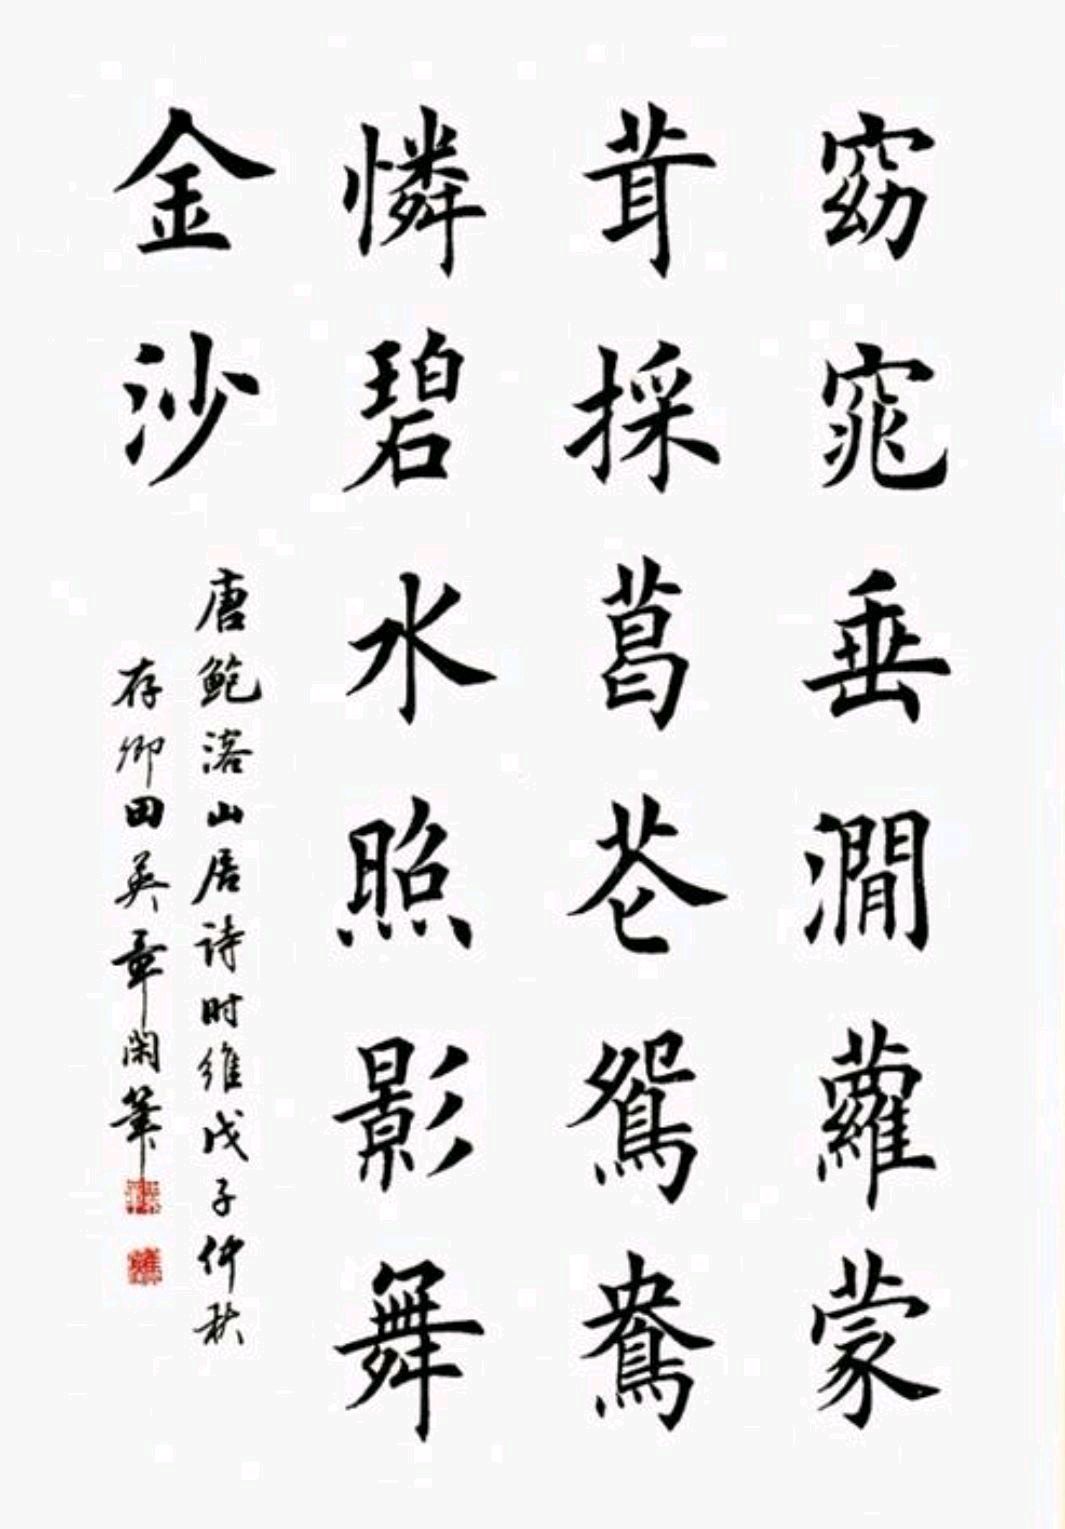 窈窕垂澗蘿蒙
茸採葛花鴛鴦
憐碧水照影舞
金沙
唐鲍溶山居诗时维戊子仲秋
存卿田英章闲筆